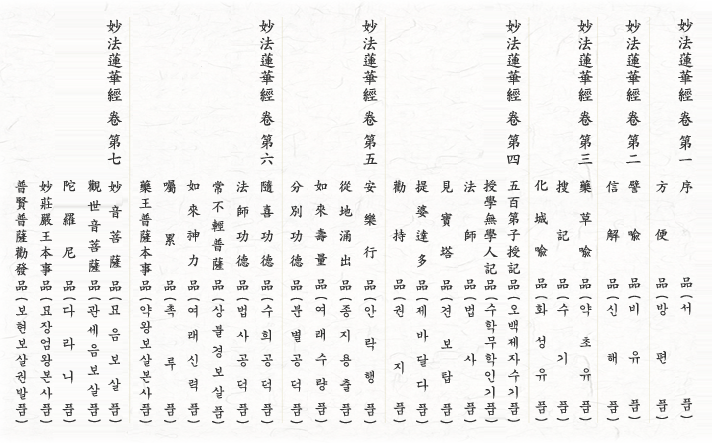 妙法蓮華經 卷第一 序品(서품)
方便品(방편품)
妙法蓮華經 卷第二 譬喩品(비유품)
信解品(신해품)
妙法蓮華經 卷第三 藥草喩品(약초유품)
搜記品(수기품)
化城喩品(화성유품)
妙法蓮華經 卷第四 五百第子授記品(오백제자수기품)
授學無學人記品(수학무학인기품)
法師品(법사품)
見寶塔品(견보탑품)
提婆達多品(제바달다품)
勸持品(권지품)
妙法蓮華經 卷第五 安樂行品(안락행품)
從地涌出品(종지용출품)
如來壽量品(여래수량품)
分別功德品(분별공덕품)
妙法蓮華經 卷第六 隨喜功德品(수희공덕품)
法師功德品(법사공덕품)
常不輕普薩品(상불경보살품)
如來神力品(여래신력품)
囑累品(촉루품)
藥王普薩本事品(약왕보살본사품)
妙法蓮華經 卷第七 妙音菩薩品(묘음보살품)
觀世音菩薩品(관세음보살품)
陀羅尼品(다라니품)
妙莊嚴王本事品(묘장엄왕본사품)
普賢普薩勸發品(보현보살권발품)